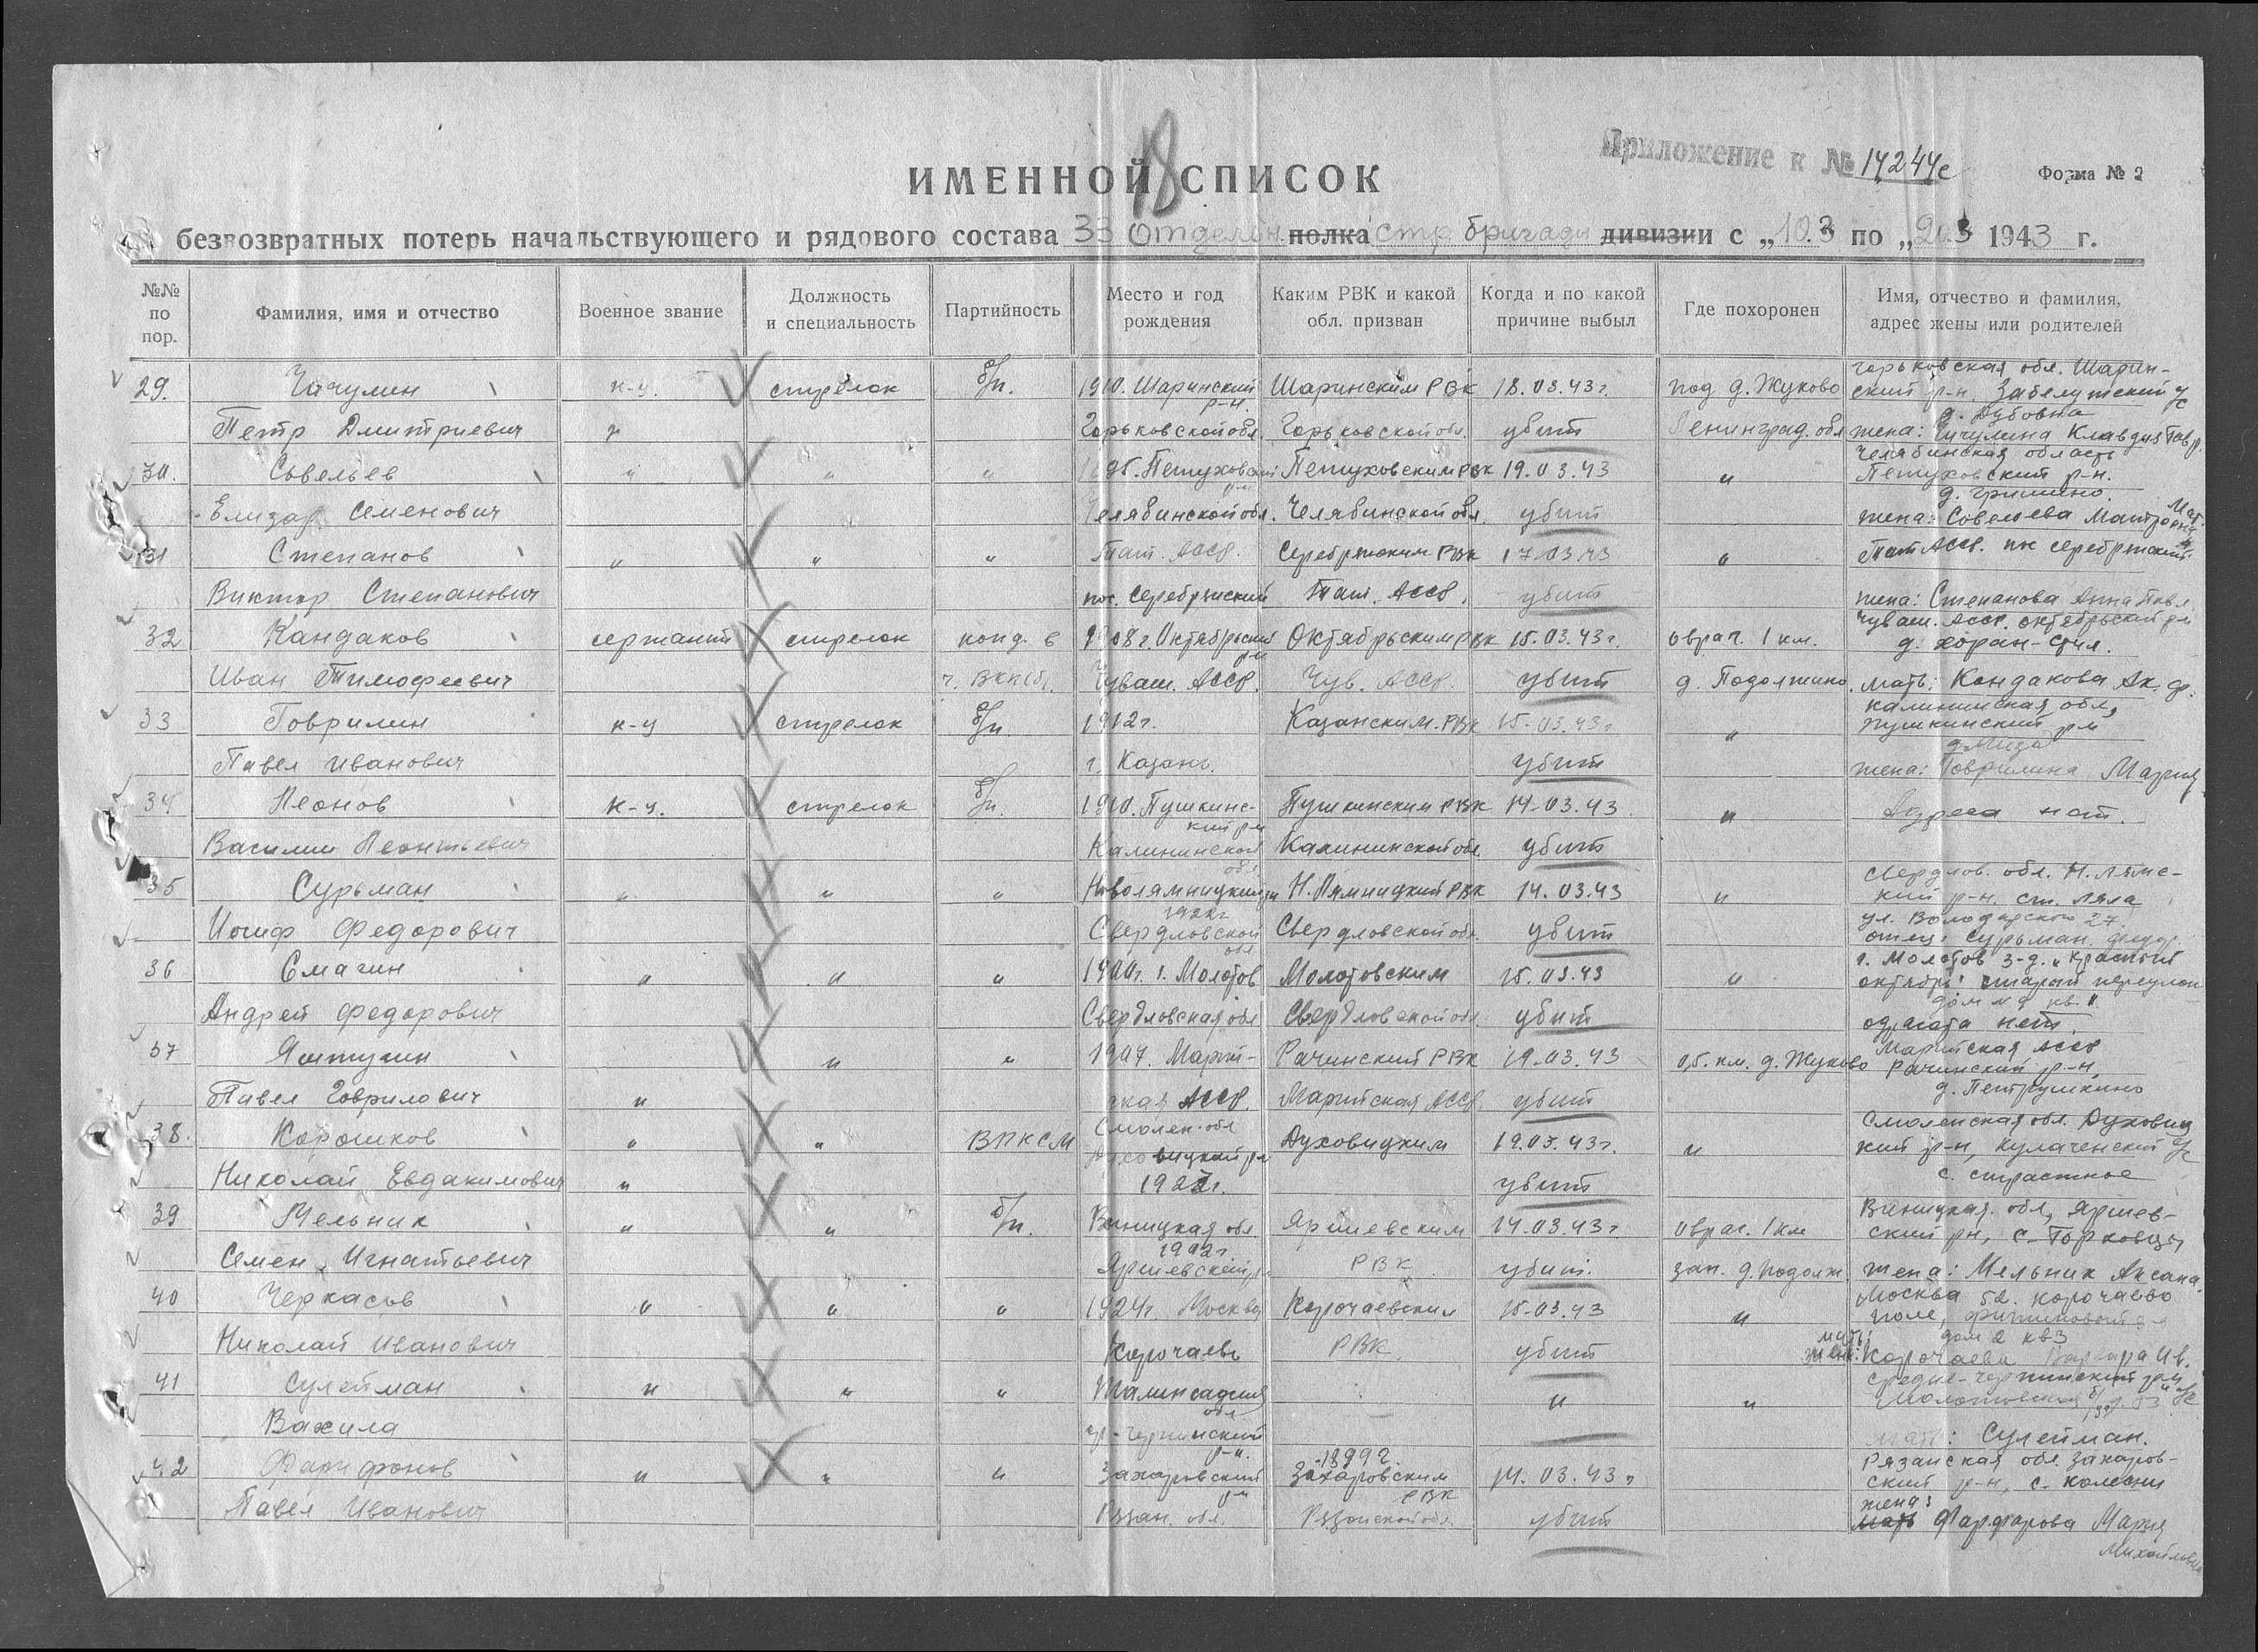 18
Приложение к № 14244с
ИМЕННОЙ СПИСОК
Форма № 2
безвозвратных потерь начальствующего и рядового состава 33 Отделён. полка стр бригады дивизии с „10.3 по „20.3 1943 г.
№№ по пор.
Фамилия, имя и отчество
Военное звание
Должность и специальность
Партийность
Место и год рождения
Каким РВК и какой обл. призван
Когда и по какой причине выбыл
Где похоронен
Имя, отчество и фамилия, адрес жены или родителей
горьковская обл. Шарин-
29. Чичулин к-ц. стрелок б/п. 1910. Шаринский р-н. Шаринским РВК 18.03.43г. под д. Жуково ский р-н. Забелутский с/с
д. Дубовка
Петр Дмитриевич Горьковской обл. Горьковской обл. убит Ленинград. обл жена: Чичулина Клавдия Гавр.
Челябинская область
30. Савельев " " " Петуховский р-н Петуховским РВК 19.03.43 " Петуховский р-н.
д. Гришино.
Елизар Семенович Челябинской обл. Челябинской обл. убит жена: Савельева
31 Степанов " " " Тат. АССР. РВК 17.03.43 " Тат АССР. пос
Виктор Степанович пос. Тат. АССР. убит жена: Степанова Анна Павл
Чуваш. АССР. Октябрьский р-н
32 Кандаков сержант стрелок канд. в 1908г. Октябрьский р-н Октябрьским РВК 15.03.43г. овраг. 1 км.
Иван Тимофеевич ч. ВКП(б). Чуваш. АССР. Чув. АССР убит д. Подолжино. мать: Кондакова Ак. Ф.
Калининская обл,
33 Гаврилин к-ц стрелок б/п. 1912г. Казанским. РВК 15.03.43г " Пушкинский р-н
Павел Иванович г. Казань. убит жена: Гаврилина Мария
34. Леонов к-ц. стрелок б/п. 1910. Пушкинс-кий р-н Пушкинским РВК 14.03.43 " Адреса нет.
Василий Леонтьевич Калининской обл. Калининской обл. убит
Свердлов. обл. Н. Лямс-
35 Сурьман " " " Новолямницкий р-н Н. Лямницкий РВК 14.03.43 " кий р-н. ст. Ляля
ул. Володарского 27
Иосиф Федорович Свердловской обл Свердловской обл. убит отец: Сурьман. Федор
г. Молотов з-д. „Красный
36 Смагин " " " 1900г. г. Молотов Молотовским 15.03.43 " октябрь" старый переулок
Андрей Федорович Свердловская обл Свердловской обл. убит адресата нет.
Марийская АССР
37 Яштугин " " 1907. Марий- Рачинский РВК 19.03.43 0,5. км. д. Жуково Рачинский р-н,
д. Петрушкино
Павел Гаврилович " ская АССР. Марийская АССР. убит
Смолен. обл Смоленская обл. Духовщ
38. Корошков " " ВЛКСМ Духовицким 19.03.43г. " кий р-н, Кулагенский с/с
Николай Евдакимович " 1922г. убит с. страстное
Виницкая. обл, Яршев-
39 Мельник " " б/п. Виницкая обл Яршевским 14.03.43г овраг. 1 км ский рн, с.
1902г.
Семен Игнатьевич Яршевский р- РВК убит. зап. д. Подолж. жена: Мельник Аксана.
40 Черкасов " " " 1924г. Москва Карочаевским 15.03.43 " Москва 52. Карочаево
дом 2 кв 3
Николай Иванович Карочаево РВК. убит мать: Карочаева Варвара Ив.
41 Сулейман " " " обл " "
Вахила р-н. мать: Сулейман.
Рязанская обл. Захаров-
42 " " " Захаровский р-н 1899г. Захаровским РВК 14.03.43г ский р-н, с.
Павел Иванович Рязан. обл. Рязанской обл. убит жена: мать Фарфарова Мария
Михайловна